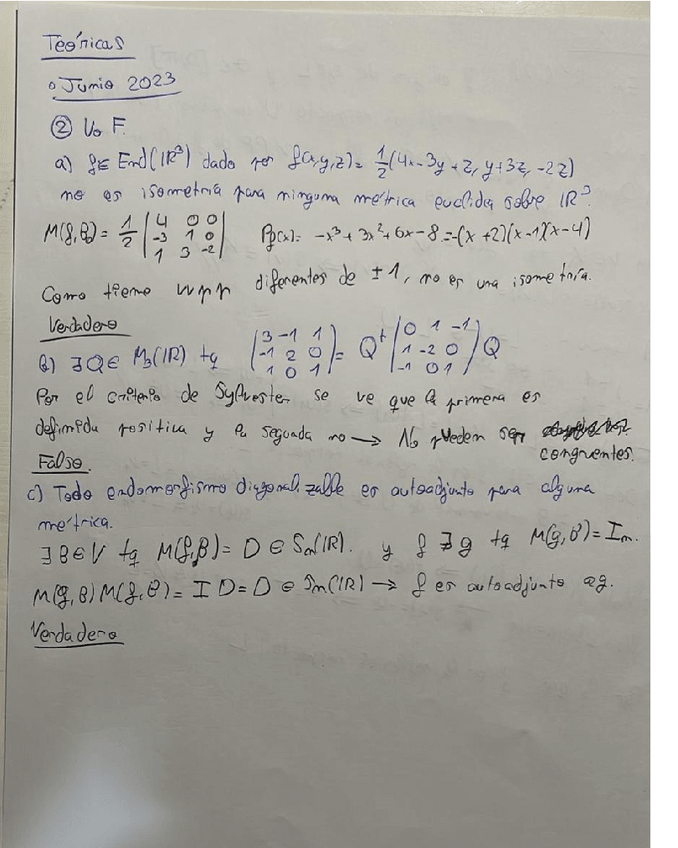 Teóricas
o Junio 2023
② V o F.
a) f ∈ End(ℝ³) dado por f(x,y,z) = 1/2 (4x-3y+z, y+3z, -2z)
no es isometría para ninguna métrica euclídea sobre ℝ³.
M(f,B₀) = 1/2 | 4 0 0 | -3 1 0 | 1 3 -2 | P_f(x) = -x³ + 3x² + 6x - 8 = -(x+2)(x-1)(x-4)
Como tiene vvpp diferentes de ±1, no es una isometría.
Verdadero
b) ∃ Q ∈ M₃(ℝ) tq ( 3 -1 1 | -1 2 0 | 1 0 1 ) = Qᵗ ( 0 1 -1 | 1 -2 0 | -1 0 1 ) Q
Por el criterio de Sylvester se ve que la primera es
definida positiva y la segunda no → No pueden ser
congruentes.
Falso.
c) Todo endomorfismo diagonalizable es autoadjunto para alguna
métrica.
∃ B ∈ V tq M(f,B) = D ∈ Sₙ(ℝ). y ∃ g tq M(g,B) = Iₙ.
M(g,B) M(f,B) = I D = D ∈ Sₙ(ℝ) → f es autoadjunto
Verdadero